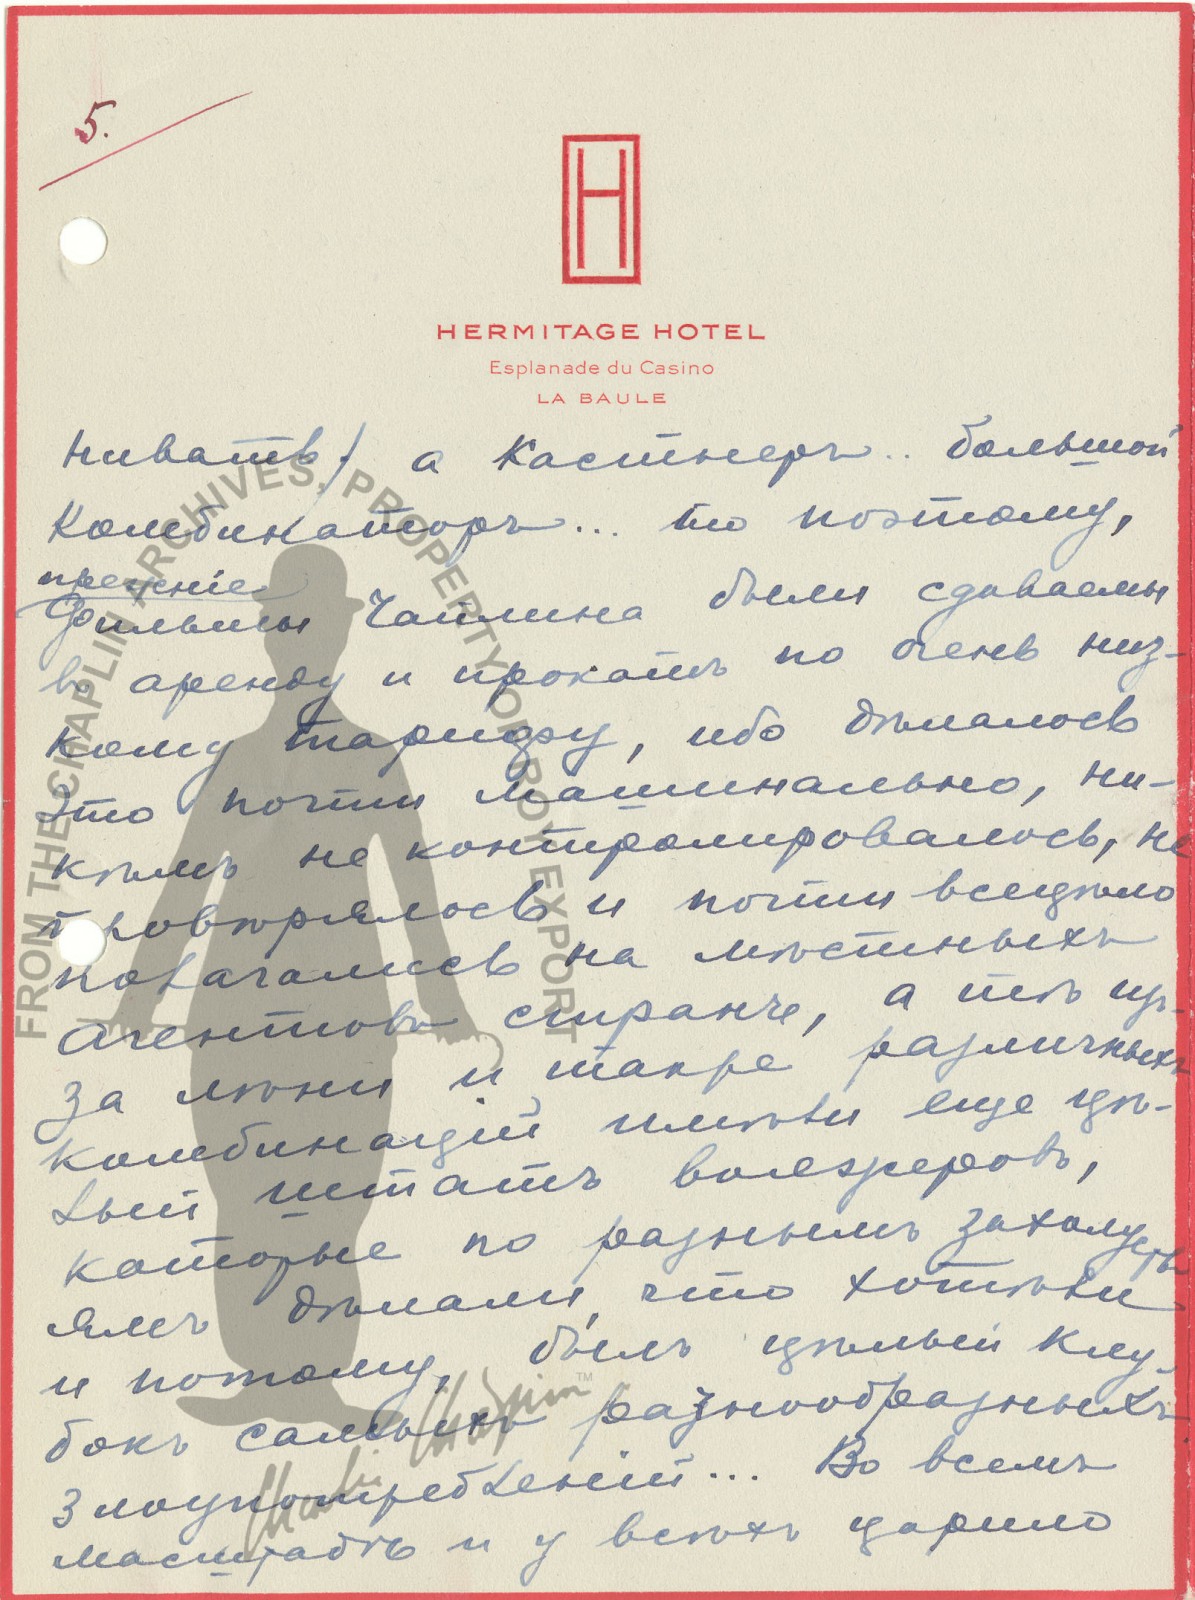 5.
H
HERMITAGE HOTEL
Esplanade du Casino
LA BAULE
нивать) а Кастнеръ.. большой
Комбинаторъ... то поэтому,
прежніе
фильмы Чаплина были сдаваемы
въ аренду и прокатъ по очень низ-
кому тарифу, ибо дѣлалось
это почти машинально, ни-
кѣмъ не контролировалось, не
провѣрялось и почти всецѣло
полагались на мѣстныхъ
агентовъ стране, а тѣ из-
за лѣни и также различныхъ
комбинацій имѣли еще цѣ-
лый штатъ вояжеровъ,
которые по разнымъ захолусть
ямъ дѣлали, что хотѣли
и потому, былъ цѣлый клу-
бокъ самыхъ разнообразныхъ
злоупотребленій... Во всемъ
масштабѣ и у всѣхъ царило
FROM THE CHAPLIN ARCHIVES, PROPERTY OF ROY EXPORT
Charlie Chaplin™